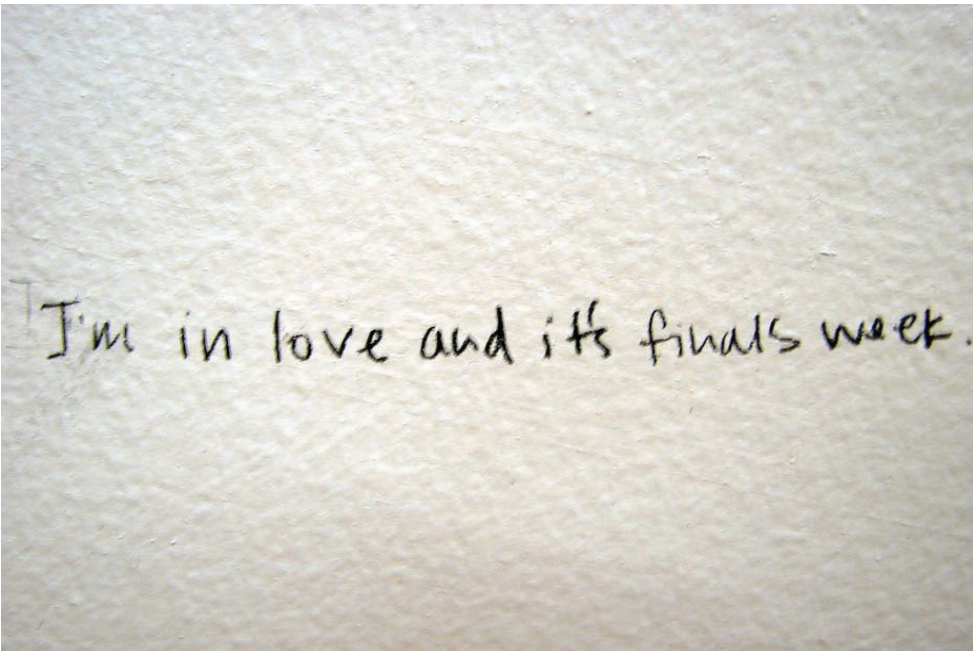 I'm in love and it's finals week.